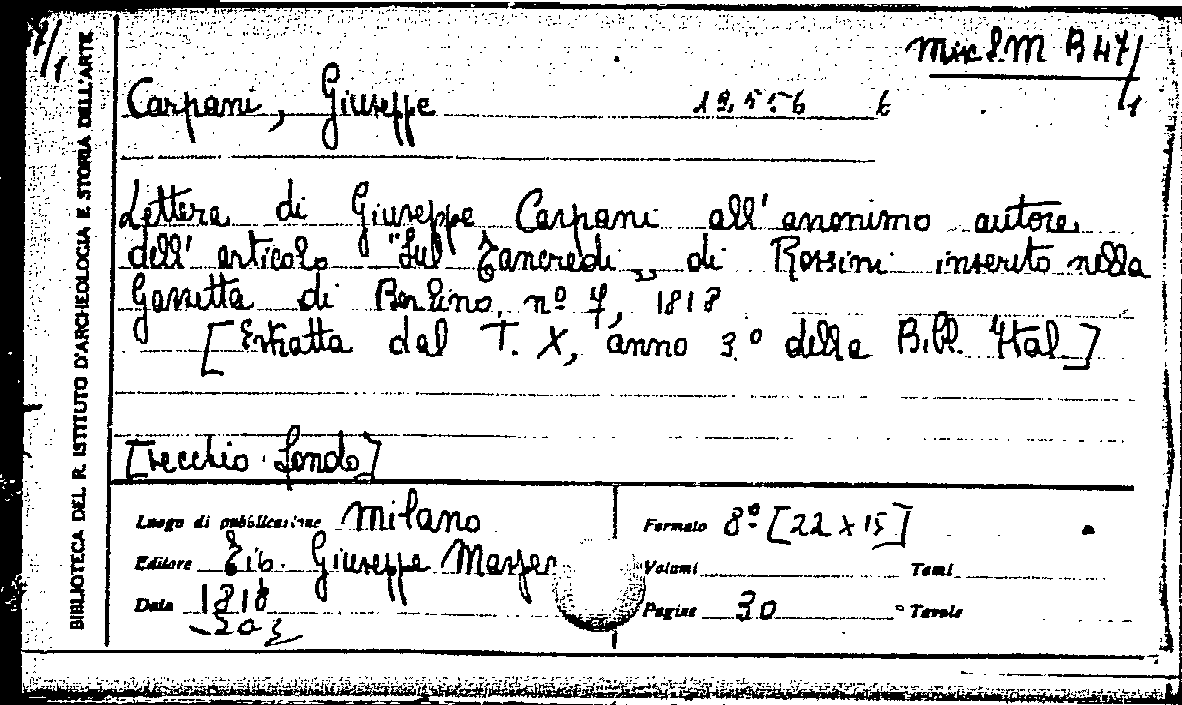 7/1
BIBLIOTECA DEL R. ISTITUTO D'ARCHEOLOGIA E STORIA DELL'ARTE
B 47/1
Carpani, Giuseppe
Lettera di Giuseppe Carpani all'anonimo autore
dell'articolo "Sul Tancredi„ di Rossini inserito nella
Gazzetta di Berlino, nº 7, 1818
[Estratta dal T. X, anno 3.º della Bibl. Ital]
[vecchio fondo]
Luogo di pubblicazione Milano
Formato 8º [22 x 15]
Editore Tib. Giuseppe
Volumi Tomi
Data 1818
Pagine 30 Tavole